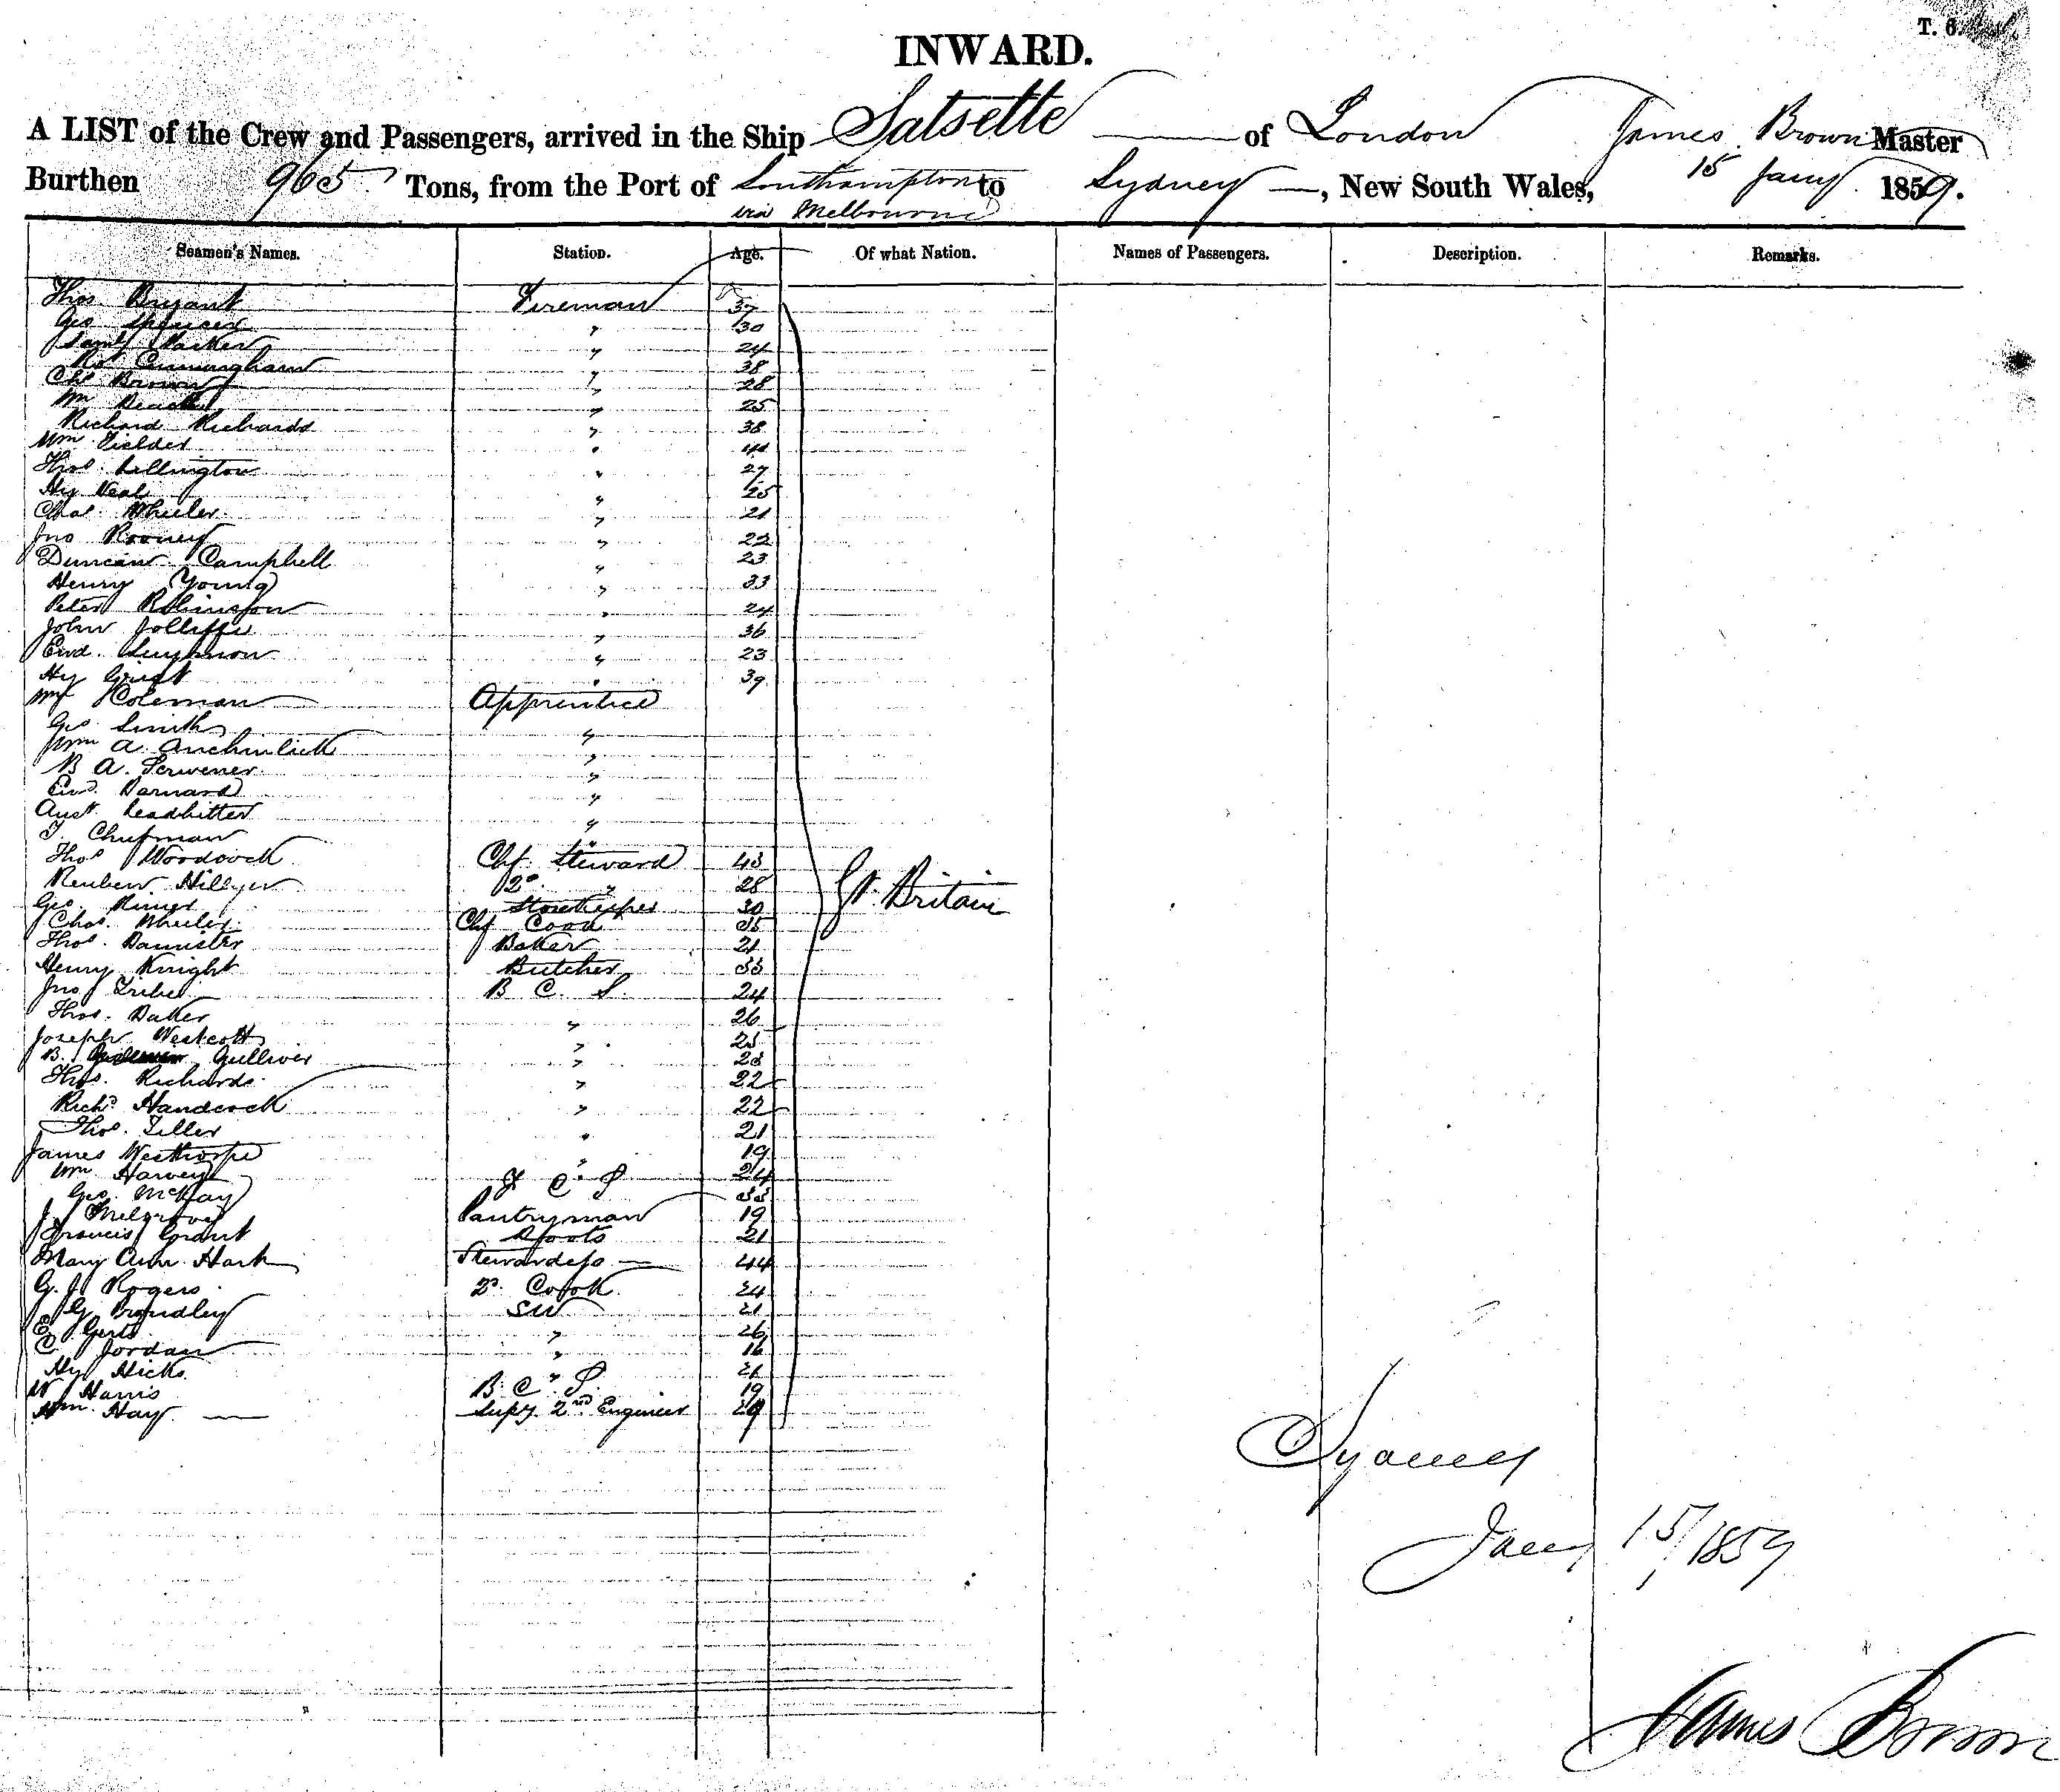 T. 6.
INWARD.
A LIST of the Crew and Passengers, arrived in the Ship Salsette of London James Brown Master
Burthen 965 Tons, from the Port of Southampton to Sydney, New South Wales, 15 Jany 1859.
via Melbourne
Seamen's Names. Station. Age. Of what Nation. Names of Passengers. Description. Remarks.
Thos Bryant Fireman 37
Geo Spencer " 30
Saml Parker " 24
Rot Cunningham " 38
Chs Brown " 28
Wm Beach " 25
Richard Richards " 38
Wm Fielder "
Thos Lillington " 27
Hy Neal " 25
Chas. Wheeler " 21
Jno Rooney " 22
Duncan Campbell " 23
Henry Young " 33
Peter Robinson " 24
John Jolliffe " 36
Ewd. " 23
Hy Grist " 39
Wm Coleman Apprentice
Geo. Smith "
Wm A. Auchinleck "
B A. Scrivener "
Ewd. Barnard "
Aust. Leadbitter "
T. Chapman "
Thos Woodcock Chf Steward 43
Reuben Hillyer 2d " 28
Geo. Storekeeper 30
Chas. Wheeler Chf Cook 35
Thos. Bannister Baker 21
Henry Knight Butcher 33
Jno Tribe B C. S. 24
Thos. Baker " 26
Joseph Westcott " 25
B. Gulliver " 23
Thos. Richards " 22
Richd Handcock " 22
Thos. Teller " 21
James Westhorpe " 19
Wm Harvey " 24
Geo. McKay F C S 33
J. Pantryman 19
Francis Grant Boots 21
Mary Ann Hart Stewardess 44
G. J. Rogers 2d. Cook 24
G. Brondley SW 21
E. " 26
C. Jordan " 16
Hy Hicks " 21
W Harris B. C. S. 19
Wm. Hay Supy. 2nd Engineer 29
Gt. Britain
Sydney
Jany 15/1859
James Brown